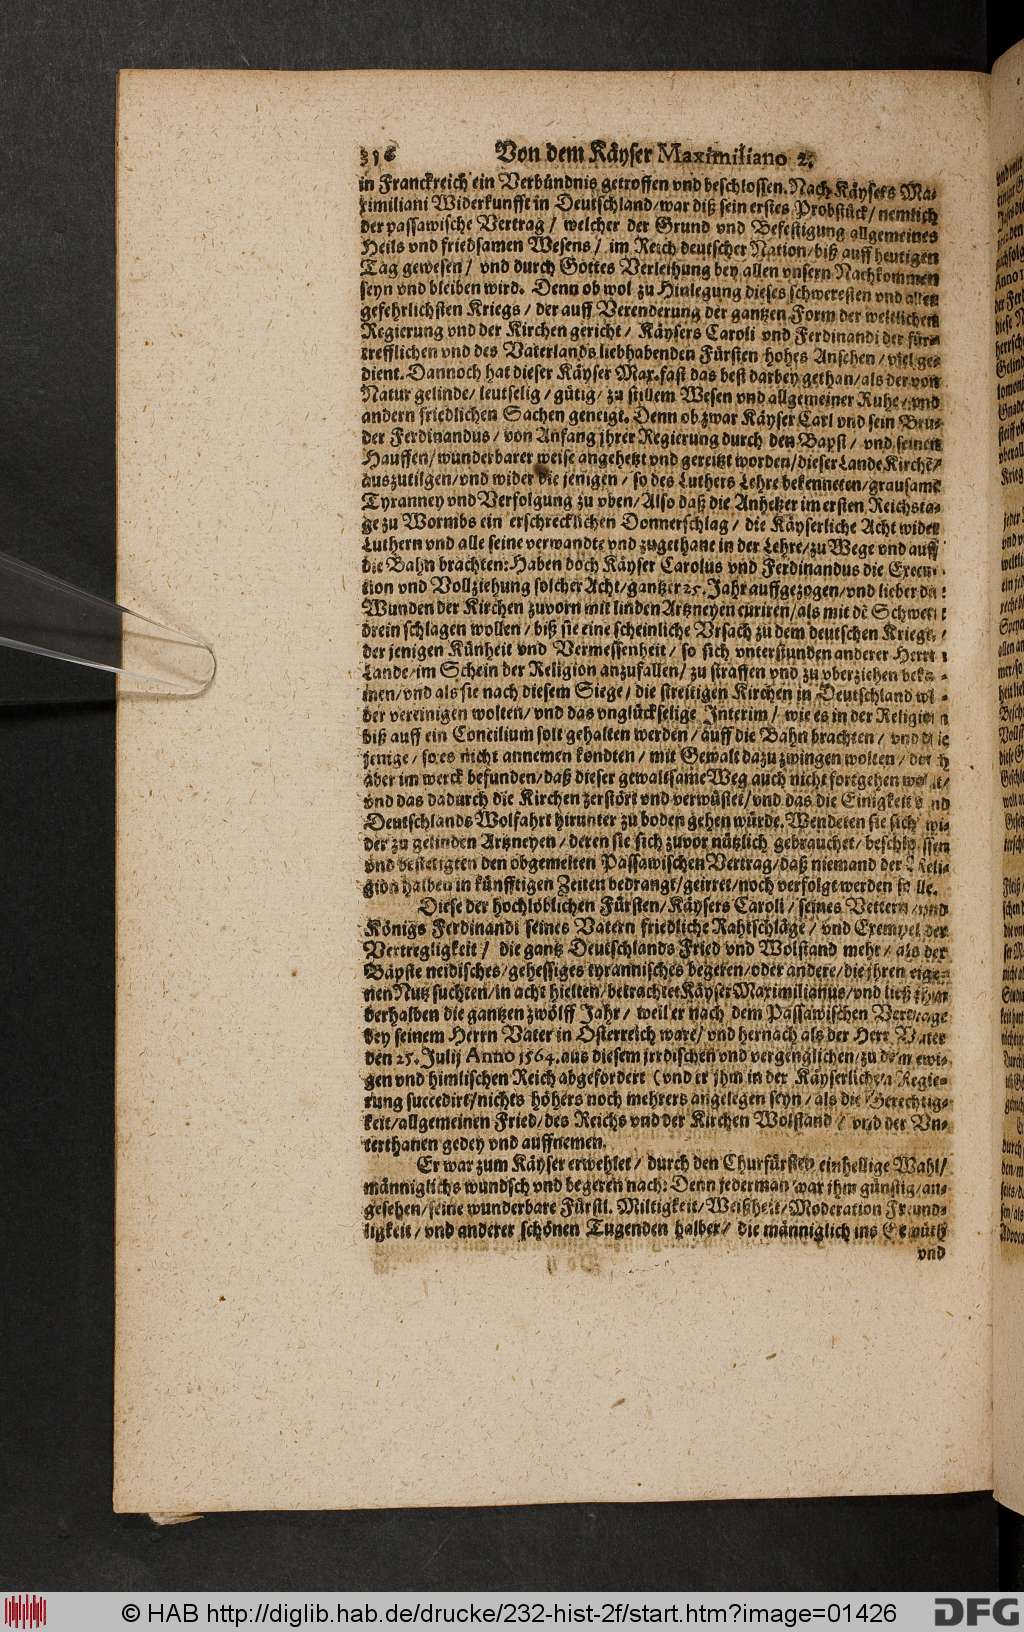 316 Von dem Käyser Maximiliano 2.
in Franckreich ein Verbündnis getroffen vnd beschlossen. Nach Käysers Ma-
ximiliani Widerkunfft in Deutschland/ war diß sein erstes Probstück/ nemlich
der passawische Vertrag/ welcher der Grund vnd Befestigung allgemeines
Heils vnd friedsamen Wesens/ im Reich deutscher Nation/ biß auff heutigen
Tag gewesen/ vnd durch Gottes Verleihung bey allen vnsern Nachkommen
seyn vnd bleiben wird. Denn ob wol zu Hinlegung dieses schweresten vnd allen
gefehrlichsten Kriegs/ der auff Verenderung der gantzen Form der weltlichen
Regierung vnd der Kirchen gericht/ Käysers Caroli vnd Ferdinandi der für-
trefflichen vnd des Vaterlands liebhabenden Fürsten hohes Ansehen/ viel ge-
dient. Dannoch hat dieser Käyser Max. fast das best darbey gethan/ als der von
Natur gelinde/ leutselig/ gütig/ zu stillem Wesen vnd allgemeiner Ruhe/ vnd
andern friedlichen Sachen geneigt. Denn ob zwar Käyser Carl vnd sein Bru-
der Ferdinandus/ von Anfang jhrer Regierung durch den Bapst/ vnd seinen
Hauffen/ wunderbarer weise angehetzt vnd gereitzt worden/ dieser Lande Kirchē/
auszutilgen/ vnd wider die jenigen/ so des Luthers Lehre bekenneten/ grausame
Tyranney vnd Verfolgung zu vben/ Also daß die Anhetzer im ersten Reichsta-
ge zu Wormbs ein erschrecklichen Donnerschlag/ die Käyserliche Acht wider
Luthern vnd alle seine verwandte vnd zugethane in der Lehre/ zu Wege vnd auff
die Bahn brachten: Haben doch Käyser Carolus vnd Ferdinandus die Execu-
tion vnd Vollziehung solcher Acht/ gantzer 25. Jahr auffgezogen/ vnd lieber die
Wunden der Kirchen zuvorn mit linden Artzneyen curiren/ als mit dē Schwert
drein schlagen wollen/ biß sie eine scheinliche Vrsach zu dem deutschen Kriege/
der jenigen Künheit vnd Vermessenheit/ so sich vnterstunden anderer Herrn
Lande/ im Schein der Religion anzufallen/ zu straffen vnd zu vberziehen beka-
men/ vnd als sie nach diesem Siege/ die streitigen Kirchen in Deutschland wi-
der vereinigen wolten/ vnd das vnglückselige Interim/ wie es in der Religion
biß auff ein Concilium solt gehalten werden/ auff die Bahn brachten/ vnd die
jenige/ so es nicht annemen kondten/ mit Gewalt dazu zwingen wolten/ doch
aber im werck befunden/ daß dieser gewaltsame Weg auch nicht fortgehen wolt/
vnd das dadurch die Kirchen zerstört vnd verwüstet/ vnd das die Einigkeit vnd
Deutschlands Wolfahrt hirunter zu boden gehen würde. Wendeten sie sich wi-
der zu gelinden Artzneyen/ deren sie sich zuvor nützlich gebrauchet/ beschlossen
vnd bestetigten den obgemelten Passawischen Vertrag/ daß niemand der Reli-
gion halben in künfftigen Zeiten bedrangt/ geirret/ noch verfolgt werden solle.
Diese der hochlöblichen Fürsten/ Käysers Caroli/ seines Vettern/ vnd
Königs Ferdinandi seines Vatern friedliche Rahtschläge/ vnd Exempel der
Vertregligkeit/ die gantz Deutschlands Fried vnd Wolstand mehr/ als der
Bäpste neidisches/ gehessiges tyrannisches begeren/ oder andere/ die jhren eige-
nen Nutz suchten/ in acht hielten/ betrachtet Käyser Maximilianus/ vnd ließ jhm
derhalben die gantzen zwölff Jahr/ weil er nach dem Passawischen Vertrage
bey seinem Herrn Vater in Osterreich ware/ vnd hernach als der Herr Vater
den 25. Julij Anno 1564. aus diesem jrrdischen vnd vergenglichen/ zu dem ewi-
gen vnd himlischen Reich abgefordert (vnd er jhm in der Käyserlichen Regie-
rung succedirt/ nichts höhers noch mehrers angelegen seyn/ als die Gerechtig-
keit/ allgemeinen Fried/ des Reichs vnd der Kirchen Wolstand/ vnd der Vn-
terthanen gedey vnd auffnemen.
Er war zum Käyser erwehlet/ durch den Churfürsten einhellige Wahl/
männiglichs wundsch vnd begeren nach: Denn jederman war jhm günstig/ an-
gesehen/ seine wunderbare Fürstl. Miltigkeit/ Weißheit/ Moderation Freund-
ligkeit/ vnd anderer schönen Tugenden halber/ die männiglich ins Gemüth
vnd
© HAB http://diglib.hab.de/drucke/232-hist-2f/start.htm?image=01426
DFG